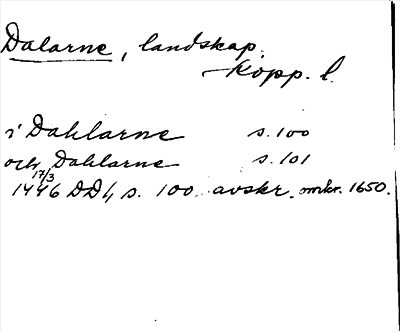 Dalarne, landskap.
Kopp. l.
i Dahlarne s. 100
och Dahlarne s. 101
17/3
1446 DD 1, s. 100. avskr. omkr. 1650.